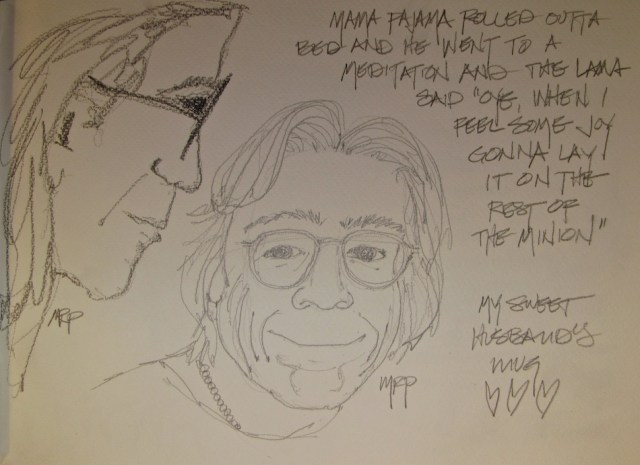 MAMA PAJAMA ROLLED OUTTA
BED AND HE WENT TO A
MEDITATON AND THE LAMA
SAID "OYE, WHEN I
FEEL SOME JOY
GONNA LAY
IT ON THE
REST OF
THE MINION"
MY SWEET
HUSBAND'S
MUG
MRP
MRP